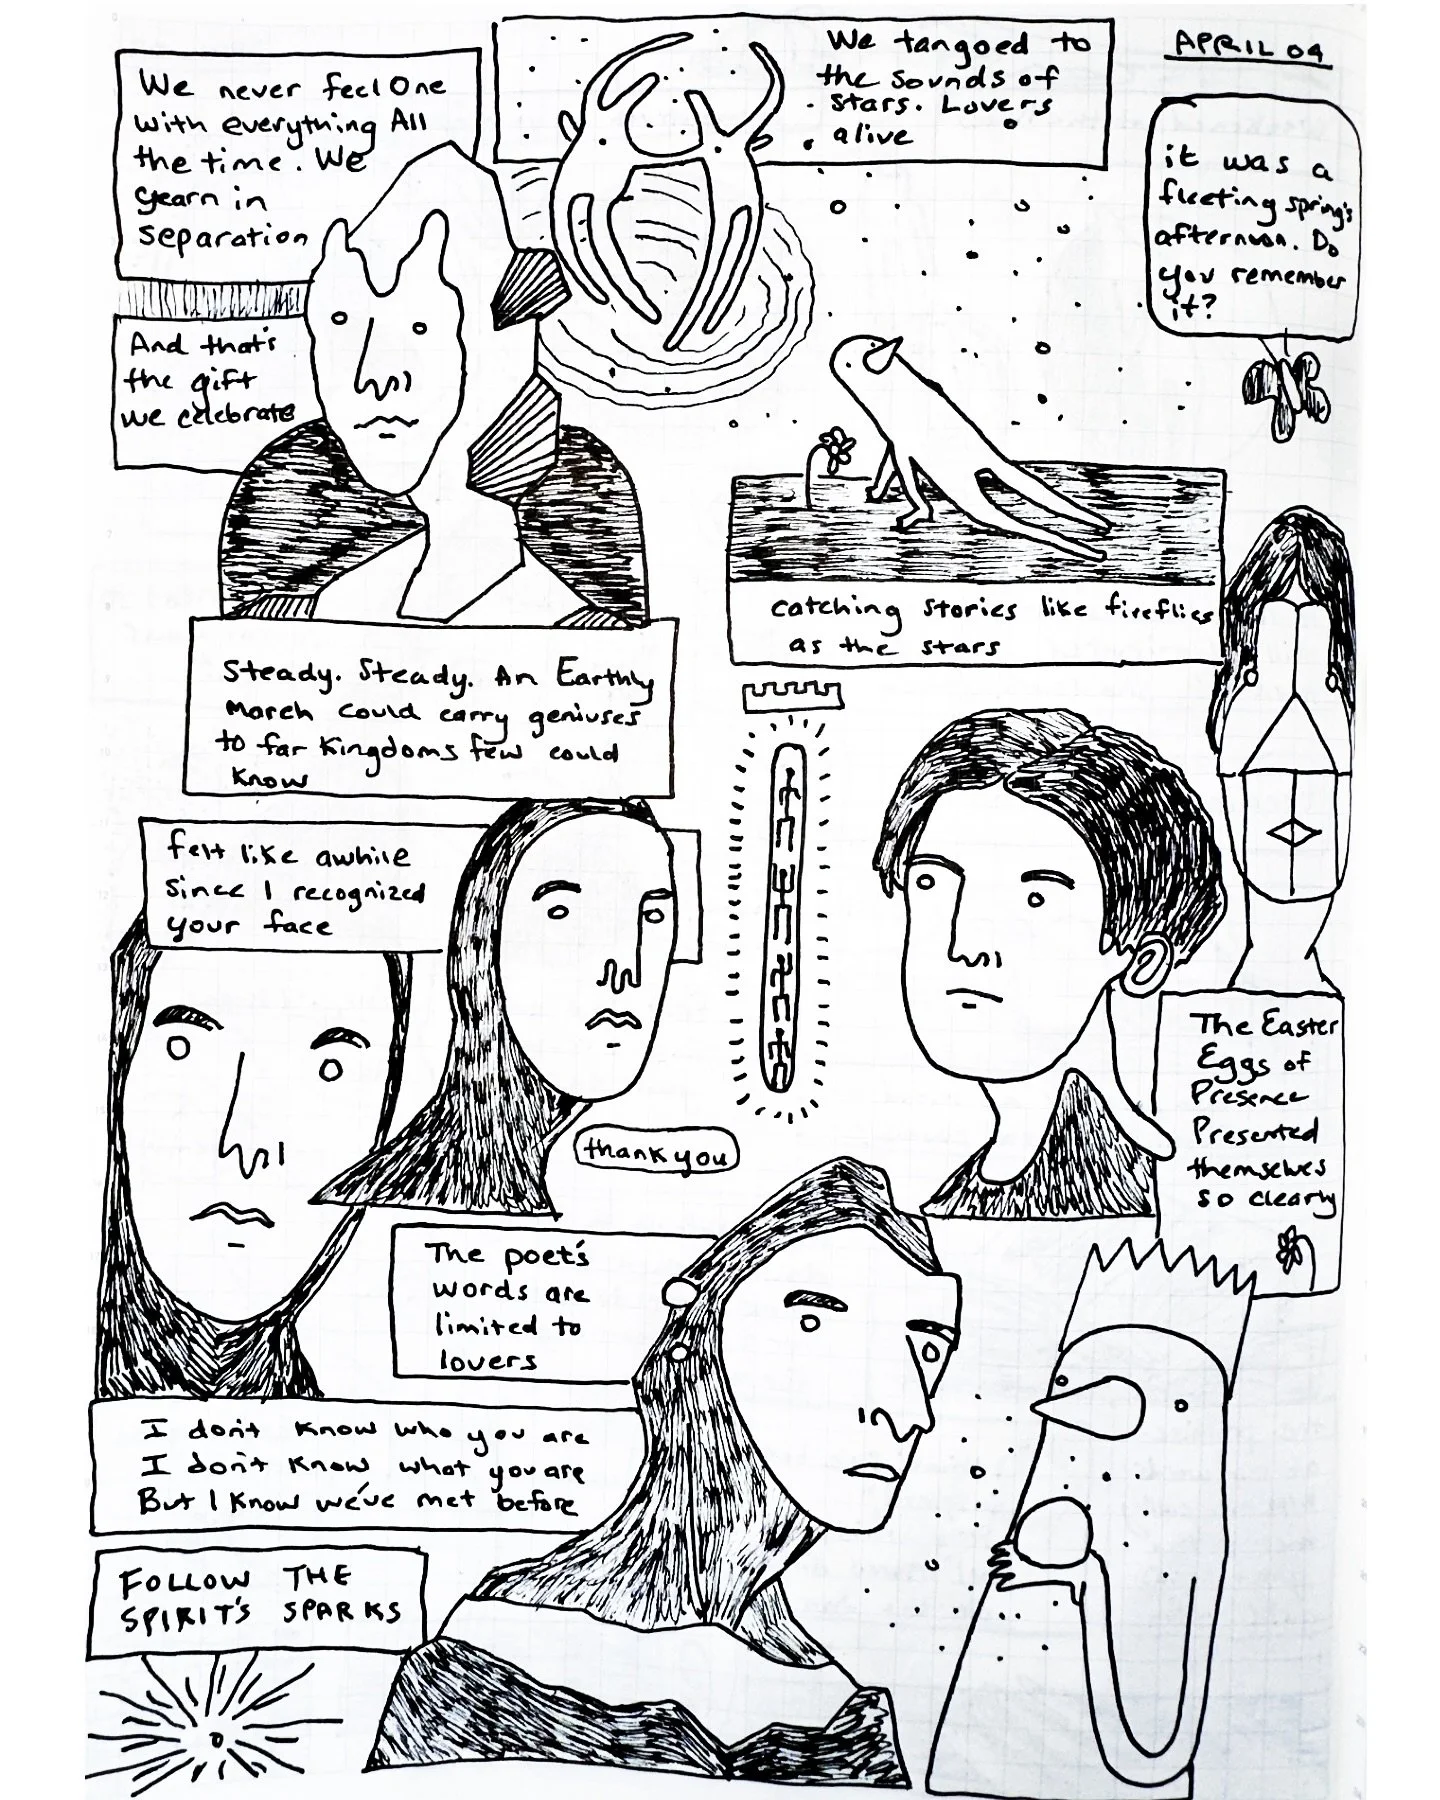 We never feel One
with everything All
the time. We
yearn in
separation
And that's
the gift
we celebrate
We tangoed to
the sounds of
stars. Lovers
alive
APRIL 04
it was a
fleeting spring's
afternoon. Do
you remember
it?
catching stories like fireflies
as the stars
Steady. Steady. An Earthly
March could carry geniuses
to far Kingdoms few could
know
felt like awhile
since I recognized
your face
thank you
The Easter
Eggs of
Presence
Presented
themselves
so clearly
The poet's
words are
limited to
lovers
I don't know who you are
I don't know what you are
But I know we've met before
FOLLOW THE
SPIRIT'S SPARKS